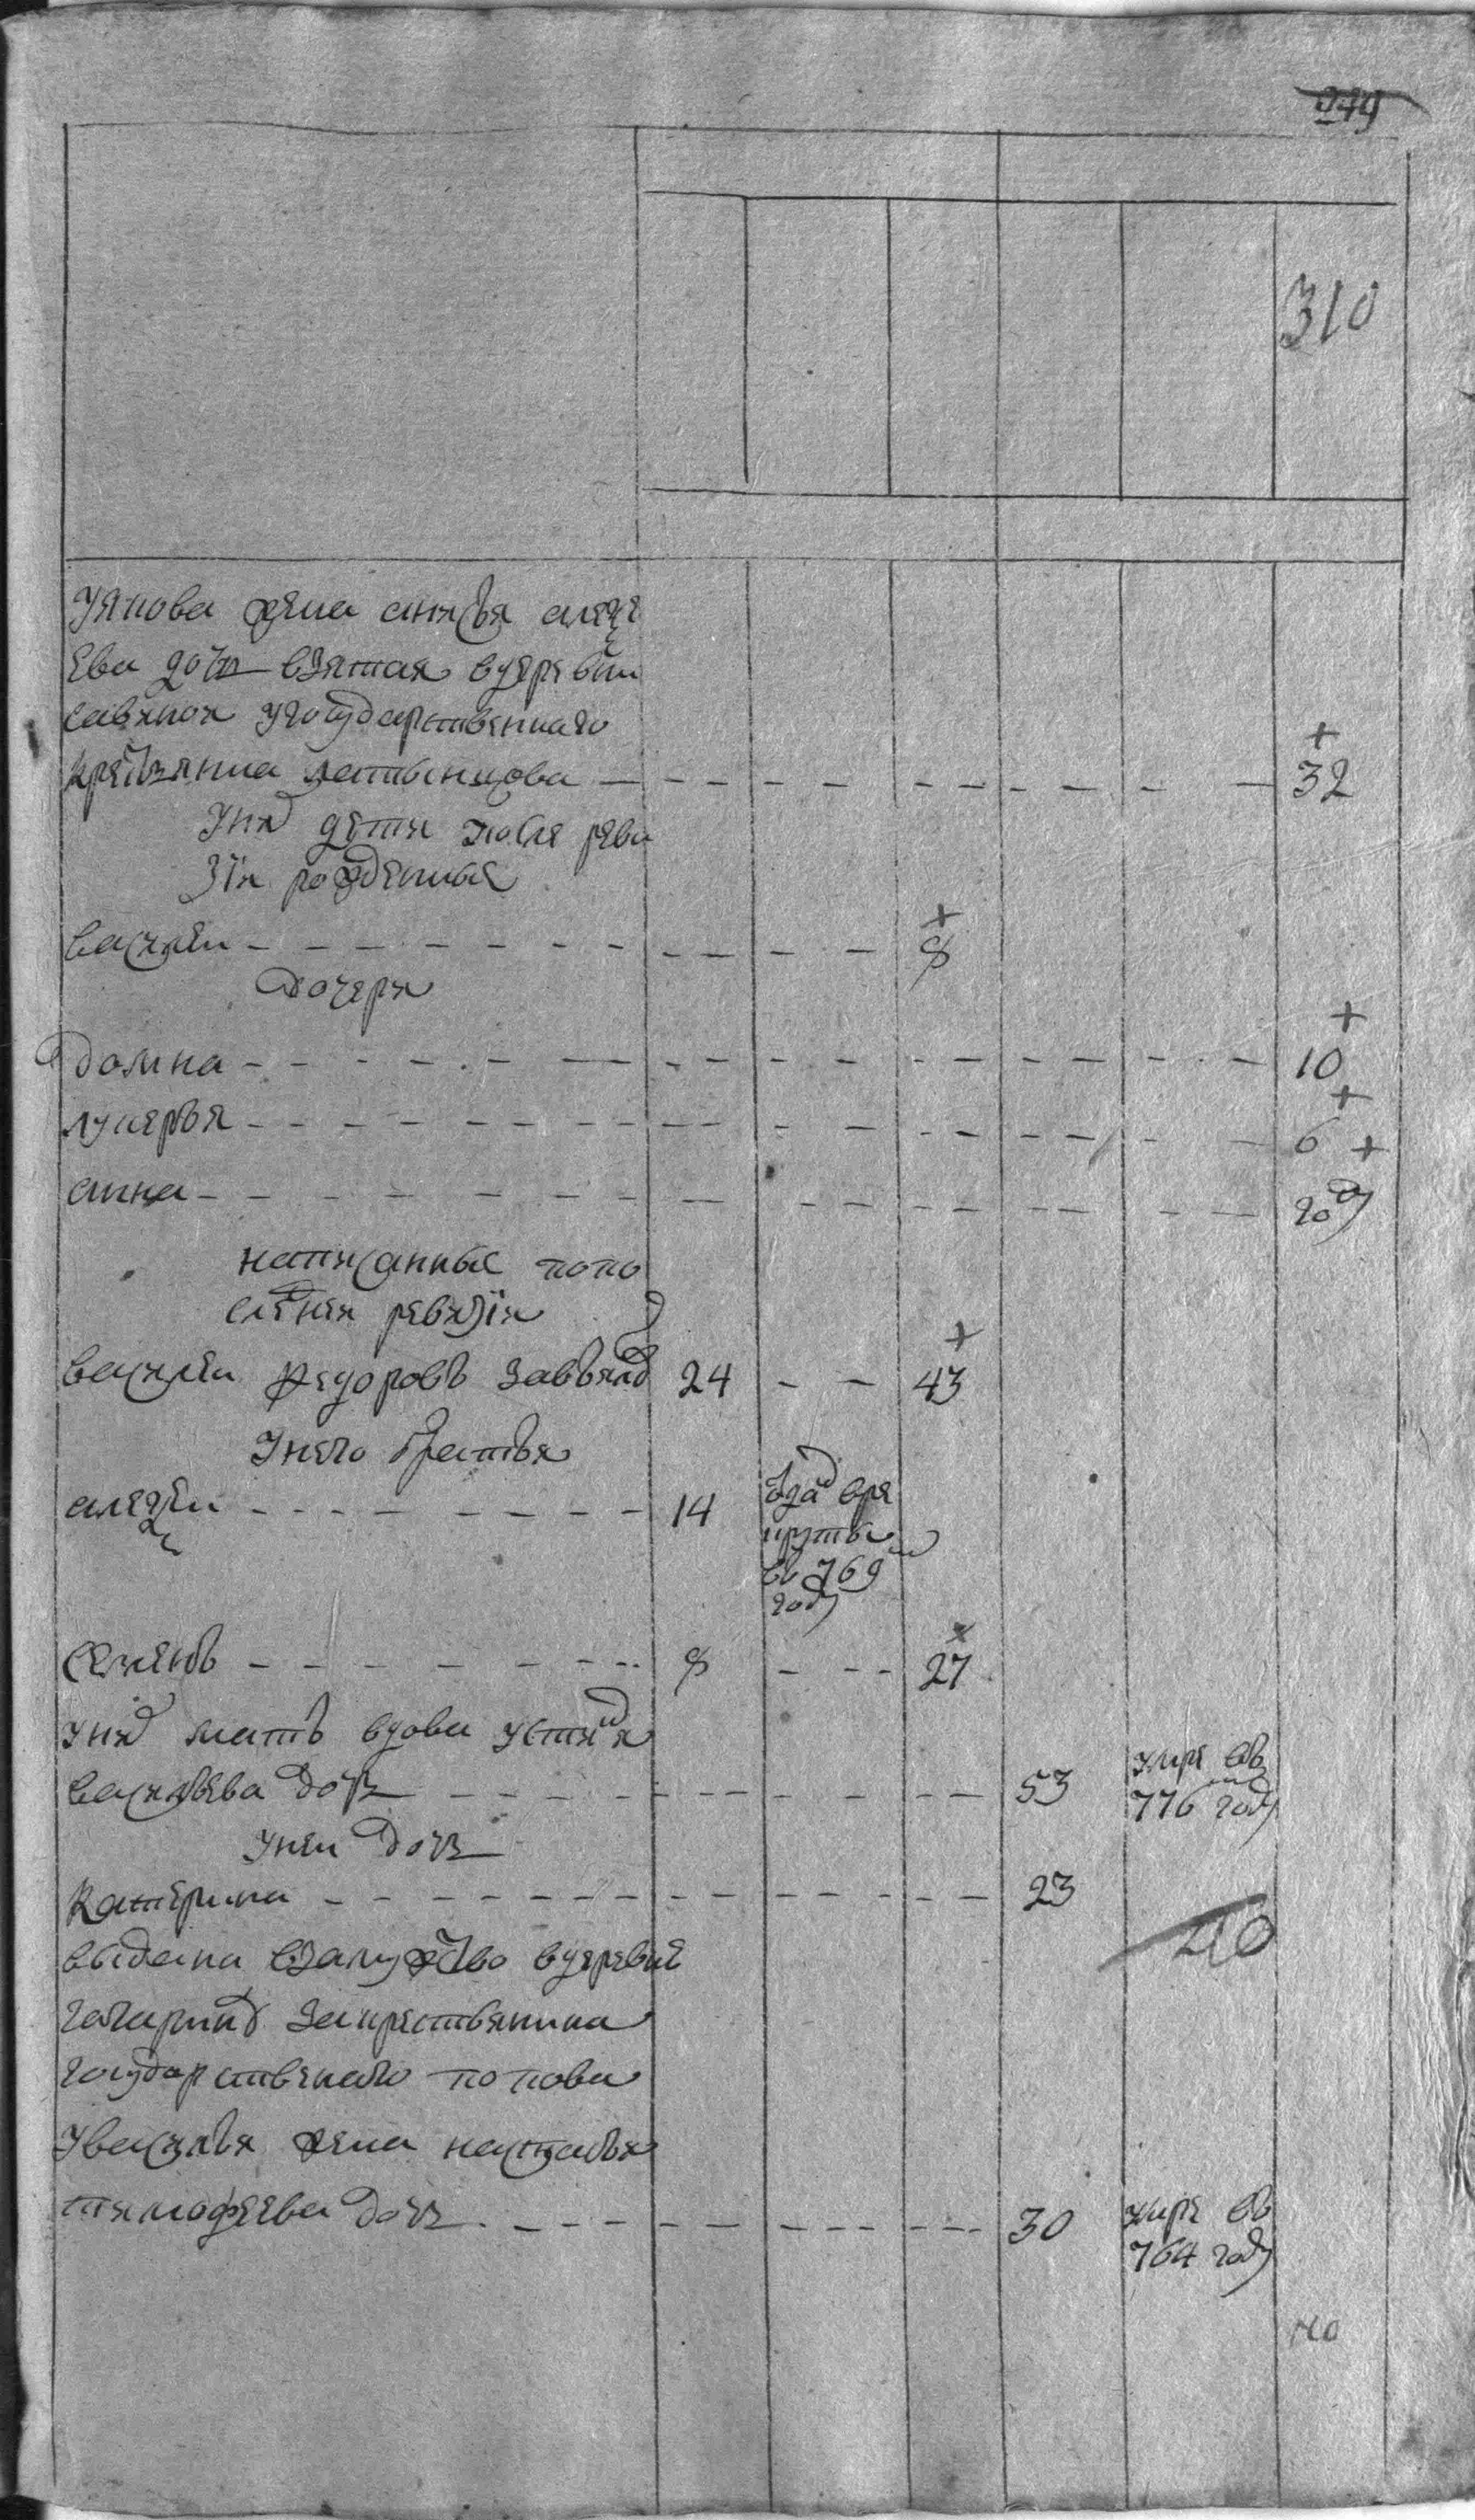 249
310
Уякова жена анисья алеѯѣ
ева дочь взятая вдеревни
савиной угосударственнаго
крестьянина латынцова — 32
Уних дети после реви
зіи рожденные
василеи — 8
Дочери
Домна — 10
лукерья — 6
анна — году
написанные попо
следнеи ревизіи
василеи федоровъ завьялов 24 — 43
Унего братья
алеѯѣи — 14 отдан вре
круты
въ 769м
году
Семенъ — 8 — 27
уних мать вдова устинья
васильева дочь — 53 умре въ
776м году
Унеи дочь
катерина — 23
40
выдана взамужство вдеревне
закрестьянина
государственаго попова
Увасилья жена настасья
тимофеева дочь — 30 умре въ
764 году